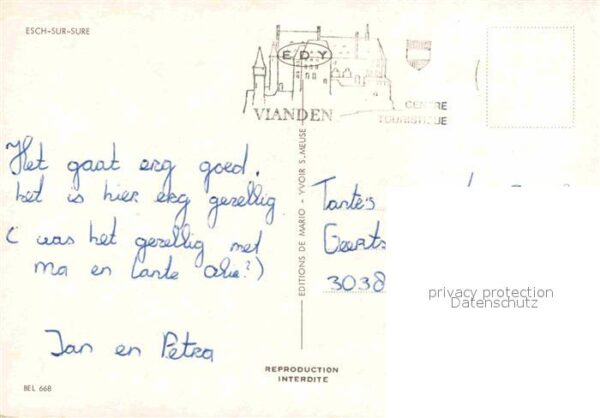 ESCH-SUR-SURE
EDY
VIANDEN
CENTRE
TOURISTIQUE
Het gaat erg goed.
het is hier erg gezellig
( was het gezellig met
ma en tante Alie?)
Jan en Petra
EDITIONS DE MARIO - YVOIR S. MEUSE
Tante's
Geerts
3038
privacy protection
Datenschutz
REPRODUCTION
INTERDITE
BEL 668